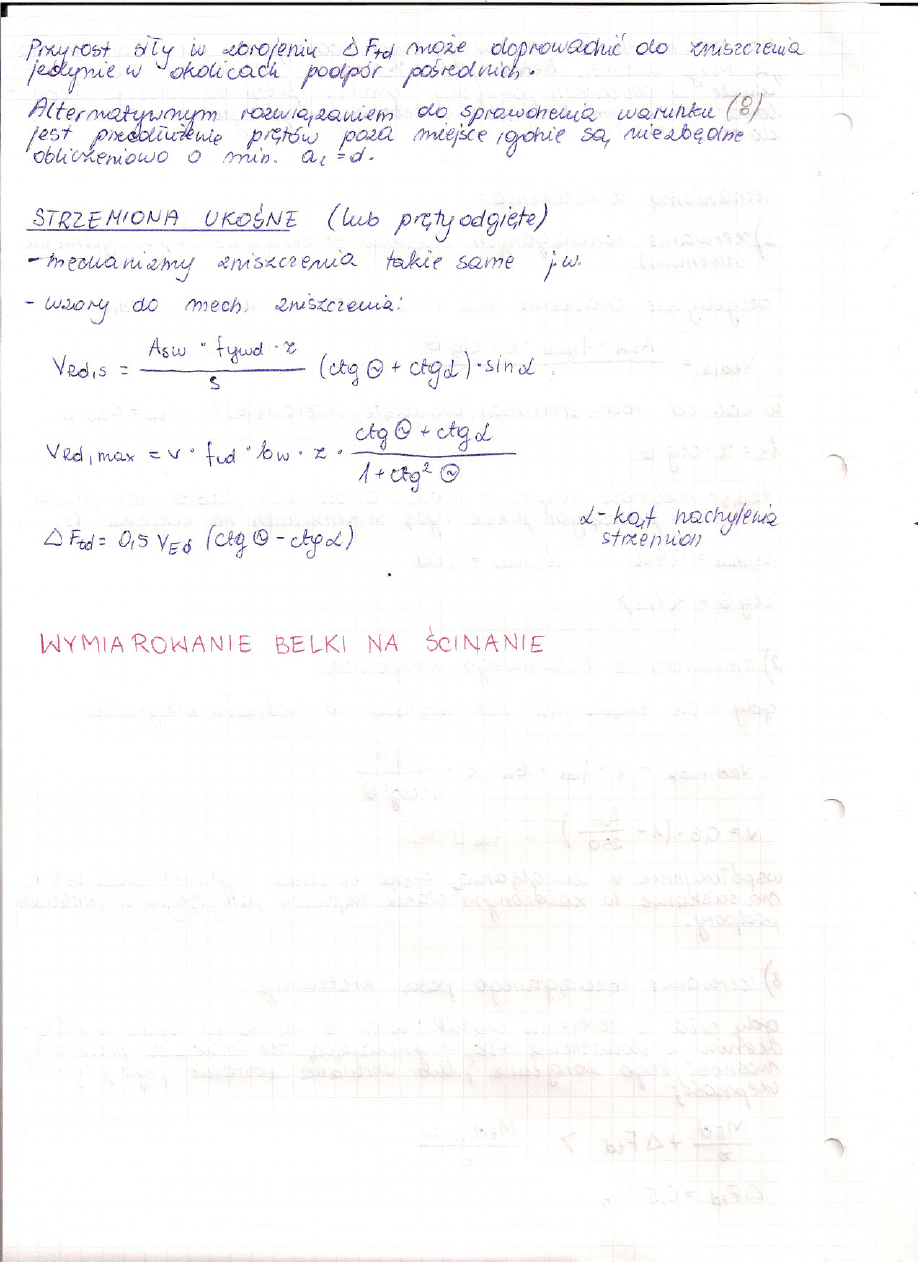 Przyrost siły w zbrojeniu Δ Ftd może doprowadzić do zniszczenia
jedynie w okolicach podpór pośrednich.
Alternatywnym rozwiązaniem do sprawdzenia warunku (8)
jest przedłużenie prętów poza miejsce, gdzie są niezbędne
obliczeniowo o min. al = d.
STRZEMIONA UKOŚNE (lub pręty odgięte)
- mechanizmy zniszczenia takie same j.w.
- wzory do mech. zniszczenia:
VRd,s = Asw · fywd · z / s (ctg Θ + ctg α) · sin α
VRd,max = ν · fcd · bw · z · ctg Θ + ctg α / 1 + ctg² Θ
Δ Ftd = 0,5 VEd (ctg Θ - ctg α)
α - kąt nachylenia
strzemion
WYMIAROWANIE BELKI NA ŚCINANIE